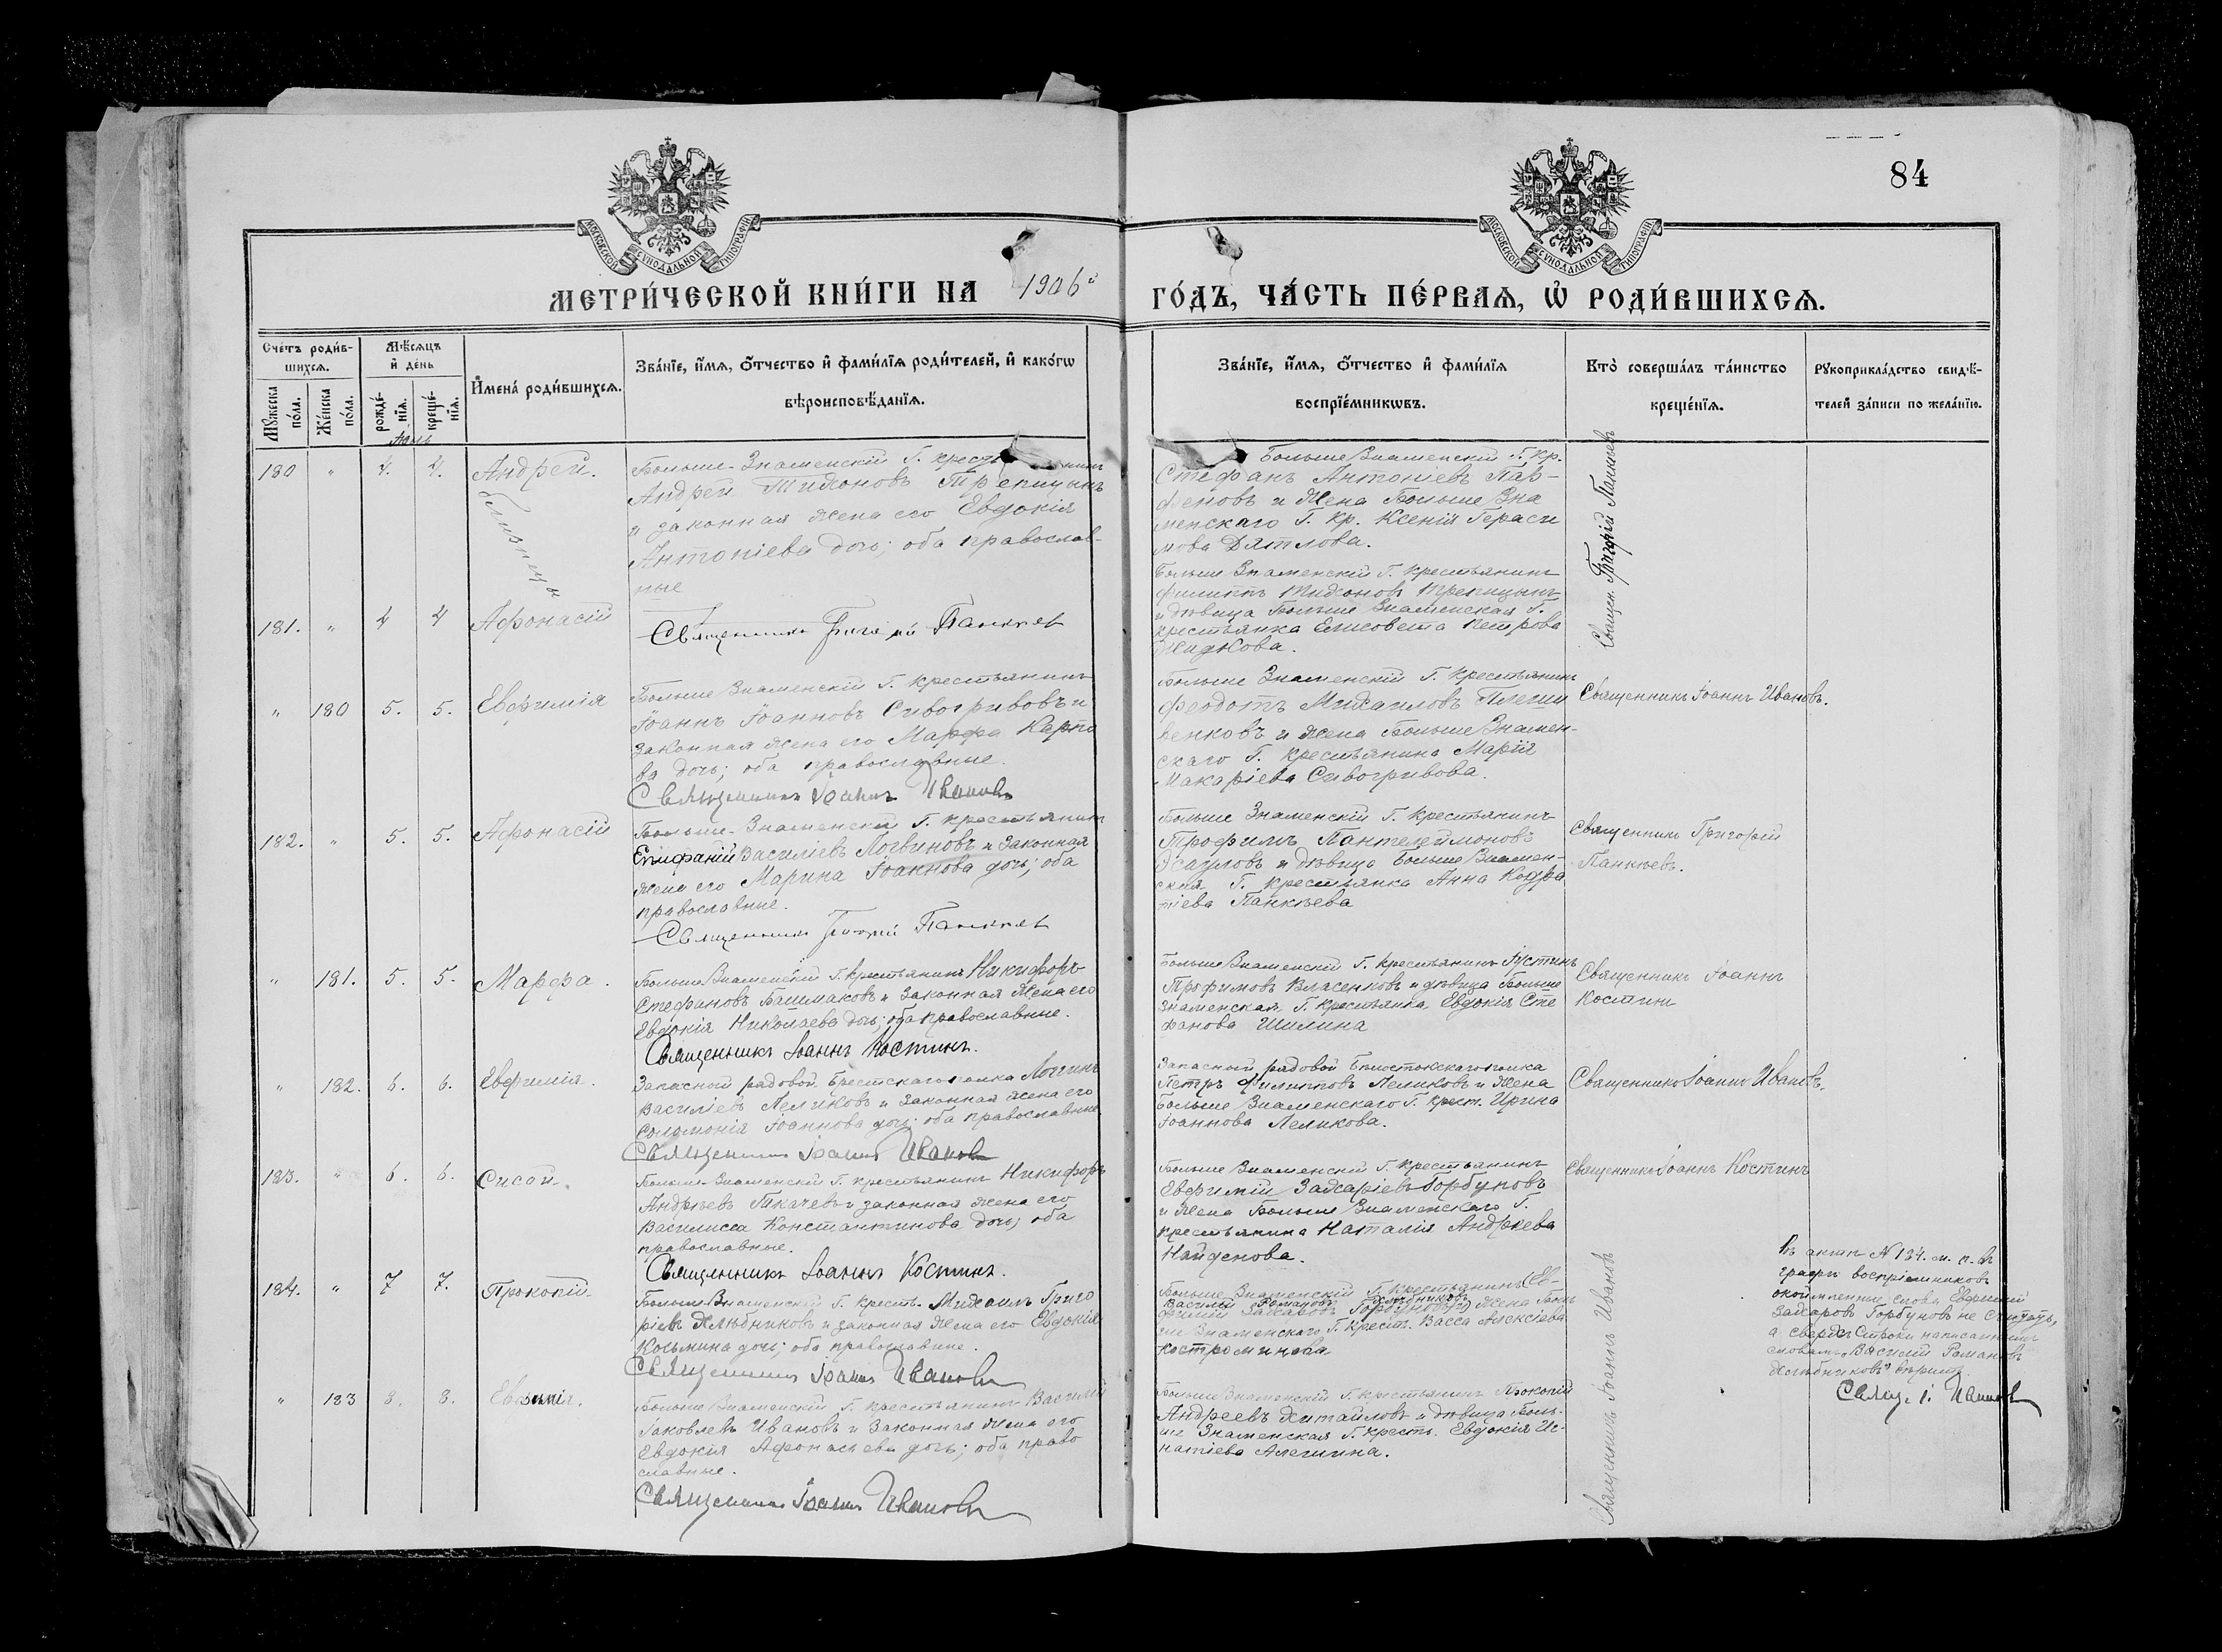 84
МОСКОВСКОЙ СѴНОДАЛЬНОЙ ТИПОГРАФІИ
МОСКОВСКОЙ СѴНОДАЛЬНОЙ ТИПОГРАФІИ
МЕТРИ́ЧЕСКОЙ КНИ́ГИ НА 1906й
ГО́ДЪ, ЧА́СТЬ ПЕ́РВАѦ, Ѡ҆ РОДИ́ВШИХСѦ.
Сче́тъ роди́в-
шихсѧ.
Мꙋ́жеска по́ла.
Же́нска по́ла.
Мѣ́сѧцъ
и҆ де́нь
рожде́-
нїѧ.
креще́-
нїѧ.
И҆мена̀ роди́вшихсѧ.
Зва́нїе, и҆́мѧ, ѻ҆́тчество и҆ фами́лїѧ роди́телей, и҆ како́гѡ
вѣроисповѣ́данїѧ.
Зва́нїе, и҆́мѧ, ѻ҆́тчество и҆ фами́лїѧ
воспрїе́мникѡвъ.
Кто̀ соверша́лъ та́инство
креще́нїѧ.
Рꙋкоприкла́дство свидѣ́-
телей за́писи по жела́нїю.
180 " 4. 4. Андрей.
близнецы
Больше-Знаменскій Г. крест
Андрей Тихоновъ Трепицынъ
и законная жена его Евдокія
Антоніева дочь; оба православ-
ные
Больше Знаменскій Г. кр.
Стефанъ Антоніевъ Пар-
феновъ и жена Больше Зна
менскаго Г. кр. Ксенія Гераси
мова Дятлова.
Священ. Григорій Панкѣевъ
181. " 4 4 Афонасій
Священникъ Григорій Панкѣев
Больше Знаменскій Г. крестьянинъ
Филиппъ Тихоновъ Трепицынъ
и дѣвица Больше Знаменская Г.
крестьянка Елисовета Петрова
Жидкова.
" 180 5. 5. Евфимія
Больше Знаменскій Г. крестьянинъ
Іоаннъ Іоанновъ Сивогривовъ и
законная жена его Марфа Карпо
ва дочь; оба православные.
Священникъ Іоаннъ Ивановъ
Больше Знаменскій Г. крестьянинъ
Феодотъ Михаиловъ Плеши
венковъ и жена Больше Знамен-
скаго Г. крестьянина Марія
Макаріева Сивогривова.
Священникъ Іоаннъ Ивановъ.
182. " 5. 5. Афонасій
Больше-Знаменскій Г. крестьянинъ
Епифаній Василіевъ Логвиновъ и законная
жена его Марина Іоаннова дочь; оба
православные.
Священникъ Григорій Панкѣев
Больше Знаменскій Г. крестьянинъ
Трофимъ Пантелеймоновъ
Эсауловъ и дѣвица Больше Знамен-
ская Г. крестьянка Анна Кодра
тіева Панкѣева
Священникъ Григорій
Панкѣевъ.
" 181. 5. 5. Марфа.
Больше Знаменскій Г. крестьянинъ Никифоръ
Стефановъ Башмаковъ и законная жена его
Евдокія Николаева дочь; оба православные.
Священникъ Іоаннъ Костинъ.
Больше Знаменскій Г. крестьянинъ Іустинъ
Трофимовъ Власенковъ и дѣвица Больше
Знаменская Г. крестьянка Евдокія Сте
фанова Шилина
Священникъ Іоаннъ
Костинъ
" 182. 6. 6. Евфимія.
Запасный рядовой Брестскаго полка Логгинъ
Василіевъ Леликовъ и законная жена его
Соломонія Іоаннова дочь; оба православные
Священникъ Іоаннъ Ивановъ
Запасный рядовой Бѣлостокскаго полка
Петръ Филипповъ Леликовъ и жена
Больше Знаменскаго Г. крест. Ирина
Іоаннова Леликова.
Священникъ Іоаннъ Ивановъ.
183. " 6. 6. Сисой.
Больше-Знаменскій Г. крестьянинъ Никифоръ
Андреевъ Ткачевъ и законная жена его
Василисса Константинова дочь; оба
православные.
Священникъ Іоаннъ Костинъ.
Больше Знаменскій Г. крестьянинъ
Евфимій Захаріевъ Горбуновъ
и жена Больше Знаменскаго Г.
крестьянина Наталія Андреева
Найденова.
Священникъ Іоаннъ Костинъ
184. " 7 7. Прокопій.
Больше-Знаменскій Г. кресть. Михаилъ Григо
ріевъ Хлѣбниковъ и законная жена его Евдокія
Козьмина дочь; оба православные.
Священникъ Іоаннъ Ивановъ
Больше Знаменскій Г. крестьянинъ (Ев-
Василій Романовъ Хлѣбниковъ
фимій Захаровъ Горбуновъ) и жена Боль
ше Знаменскаго Г. крест. Васса Алексіева
Костромінова
Священникъ Іоаннъ Ивановъ
Въ актѣ № 184. м. п. въ
графѣ воспріемниковъ
окоймленные слова Евфимій
Захаровъ Горбуновъ не считать,
а сверхъ строки написаннымъ
словамъ „Василій Романовъ
Хлѣбниковъ" вѣрить.
Свящ. І. Ивановъ
" 183 8. 8. Евфимія.
Больше Знаменскій Г. крестьянинъ Василій
Іаковлевъ Ивановъ и законная жена его
Евдокія Афонасьева дочь; оба право
славные.
Священникъ Іоаннъ Ивановъ
Больше Знаменскій Г. крестьянинъ Прокопій
Андреевъ Хитайловъ и дѣвица Боль-
ше Знаменская Г. кресть. Евдокія Иг-
натіева Алешина.